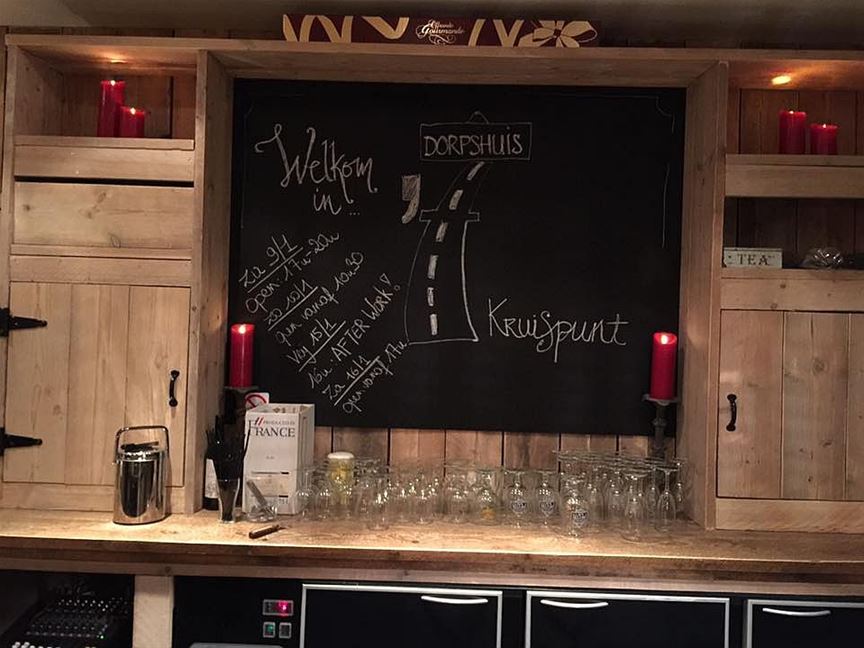 Grande
Gourmande
Welkom
in...
DORPSHUIS
't
Kruispunt
Za 9/1
open 17u-20u
zo 10/1
open vanaf 10:30
Vrij 15/1
16u: AFTER WORK!
Za 16/1
open vanaf 17u
TEA
PRODUCED IN
FRANCE